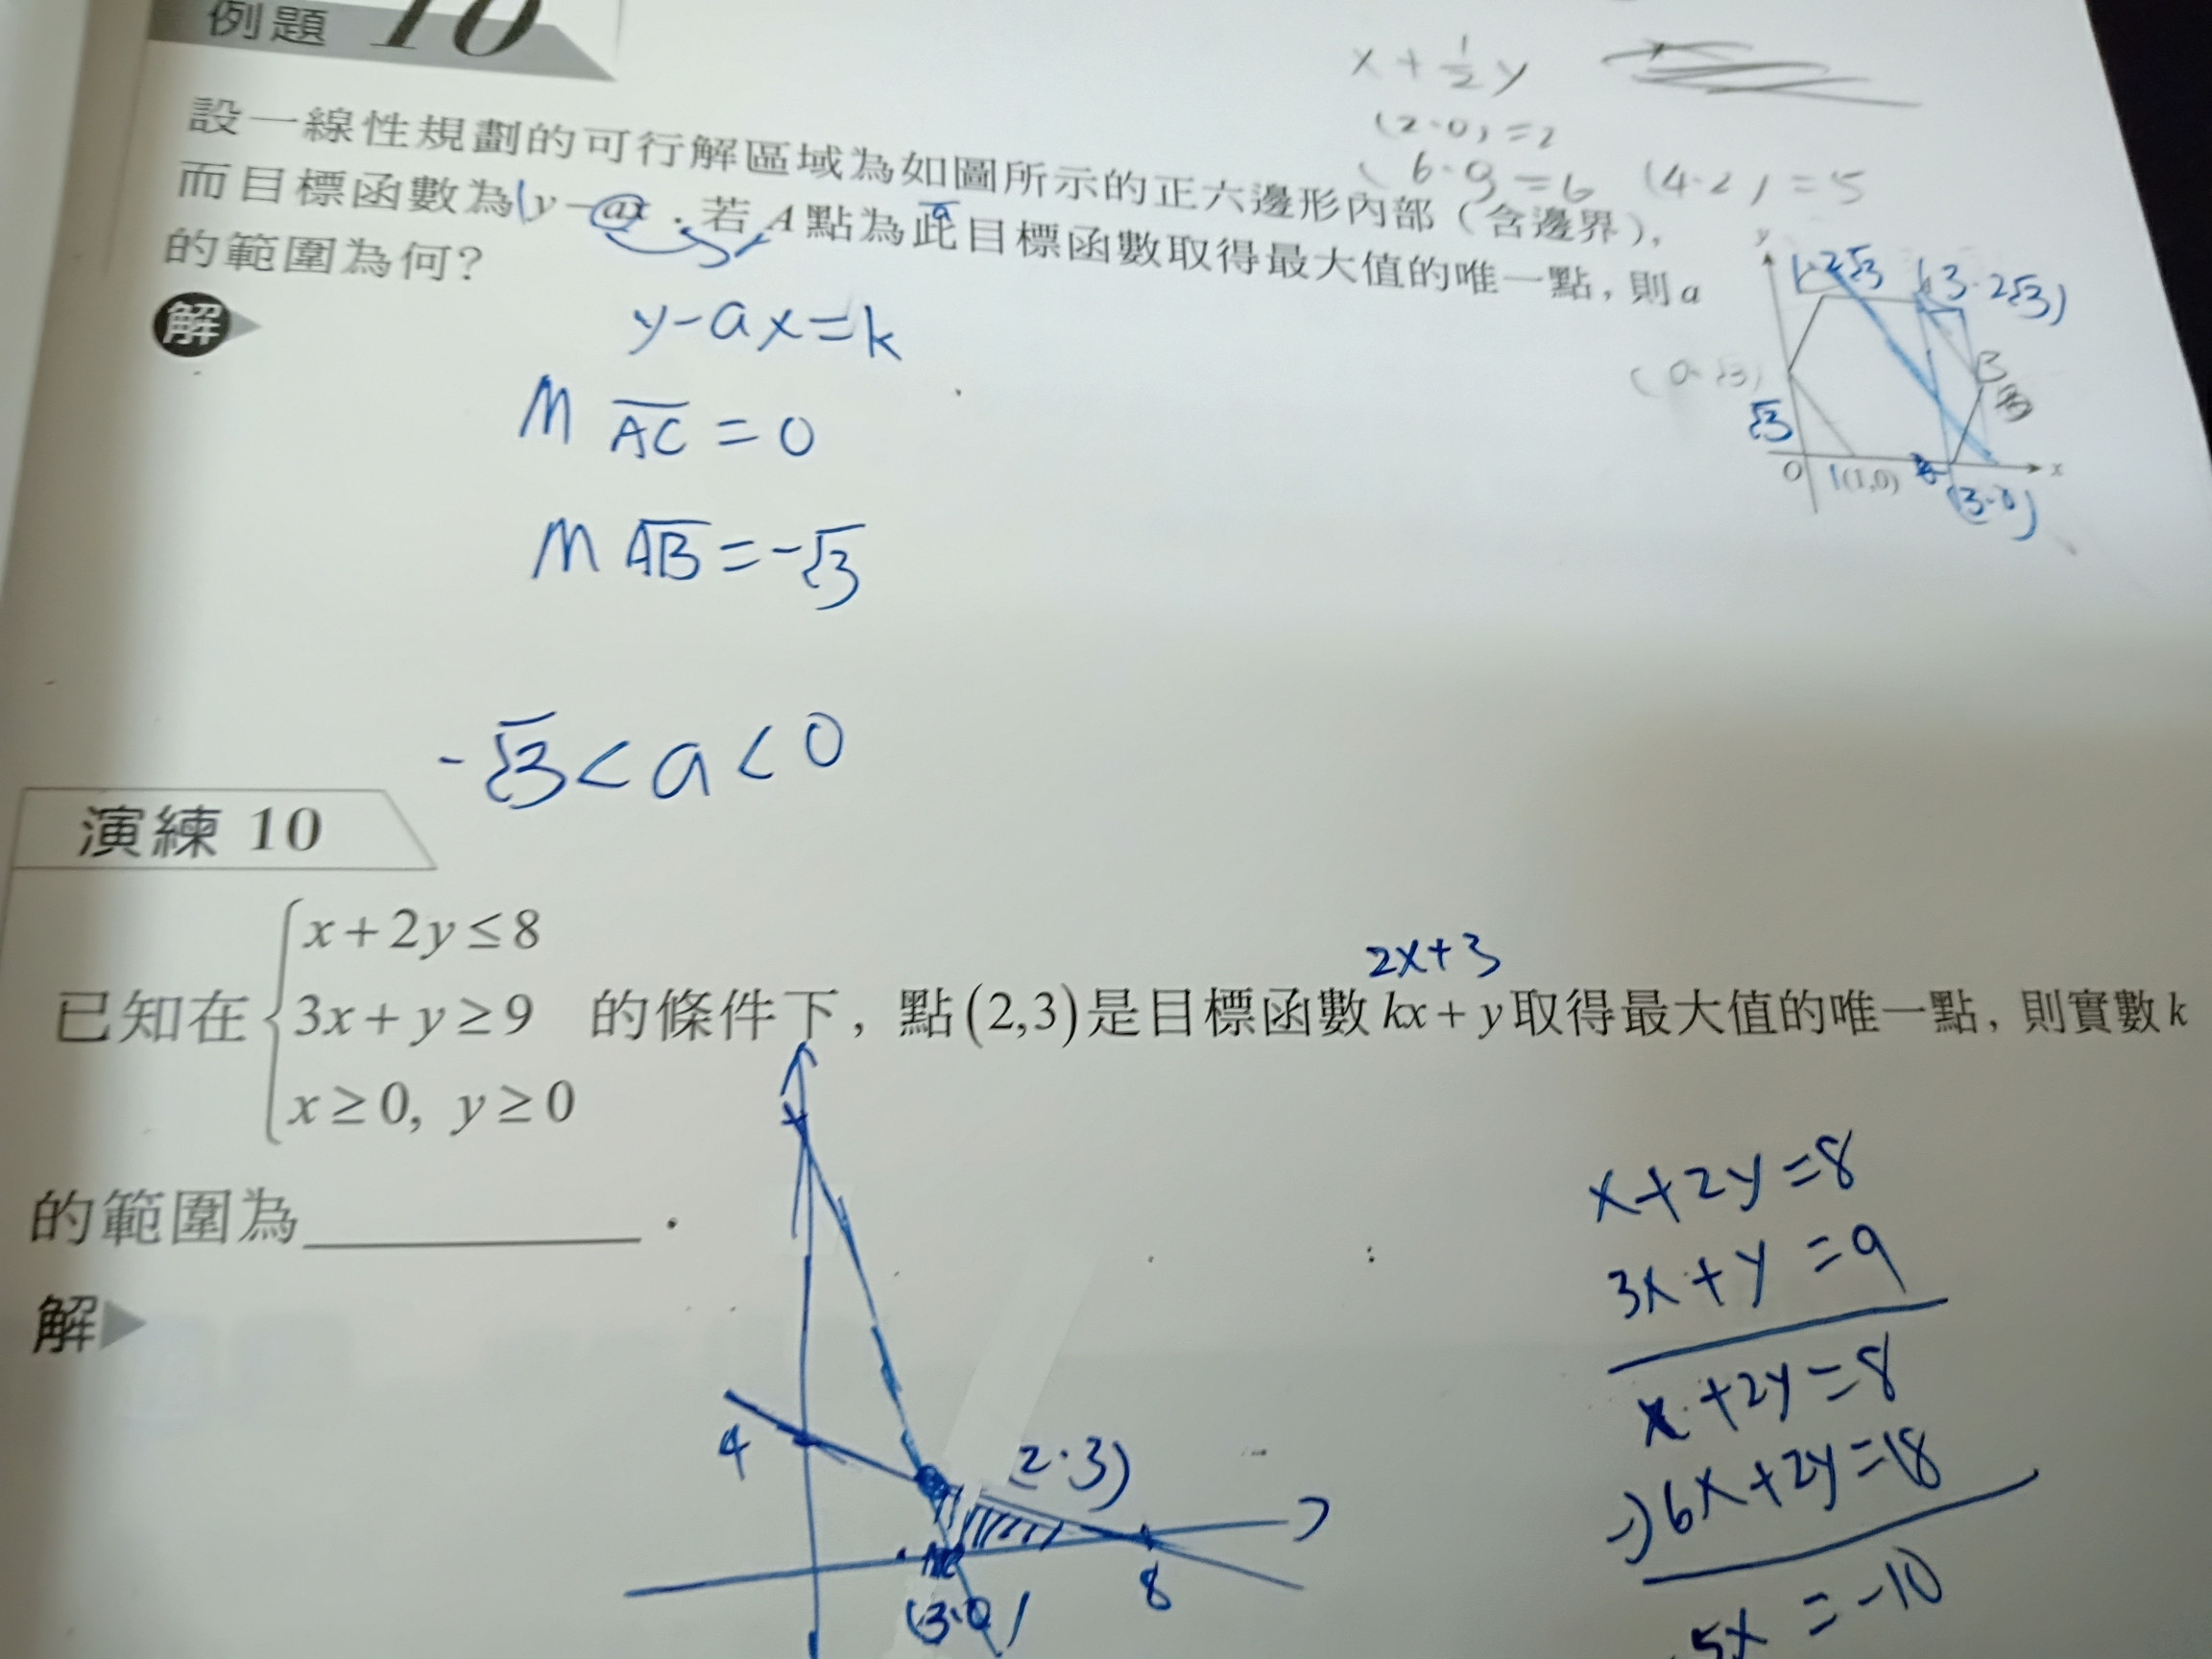 例題 10
x + 1/2 y
(2·0) = 2
(4·2) = 5
設一線性規劃的可行解區域為如圖所示的正六邊形內部（含邊界），
而目標函數為 y－ax．若 A 點為此目標函數取得最大值的唯一點，則 a
的範圍為何？
解
y-ax=k
m AC = 0
m AB = -√3
-√3 < a < 0
y
2√3
3·2√3)
√3
B
O
(1,0)
x
(3·0)
演練 10
x+2y≤8
2x+3
已知在 3x+y≥9 的條件下，點(2,3)是目標函數 kx+y 取得最大值的唯一點，則實數 k
x≥0, y≥0
的範圍為＿＿＿＿．
解
4
(2·3)
(3·0)
8
x+2y=8
3x+y=9
x+2y=8
-)6x+2y=18
5x = -10